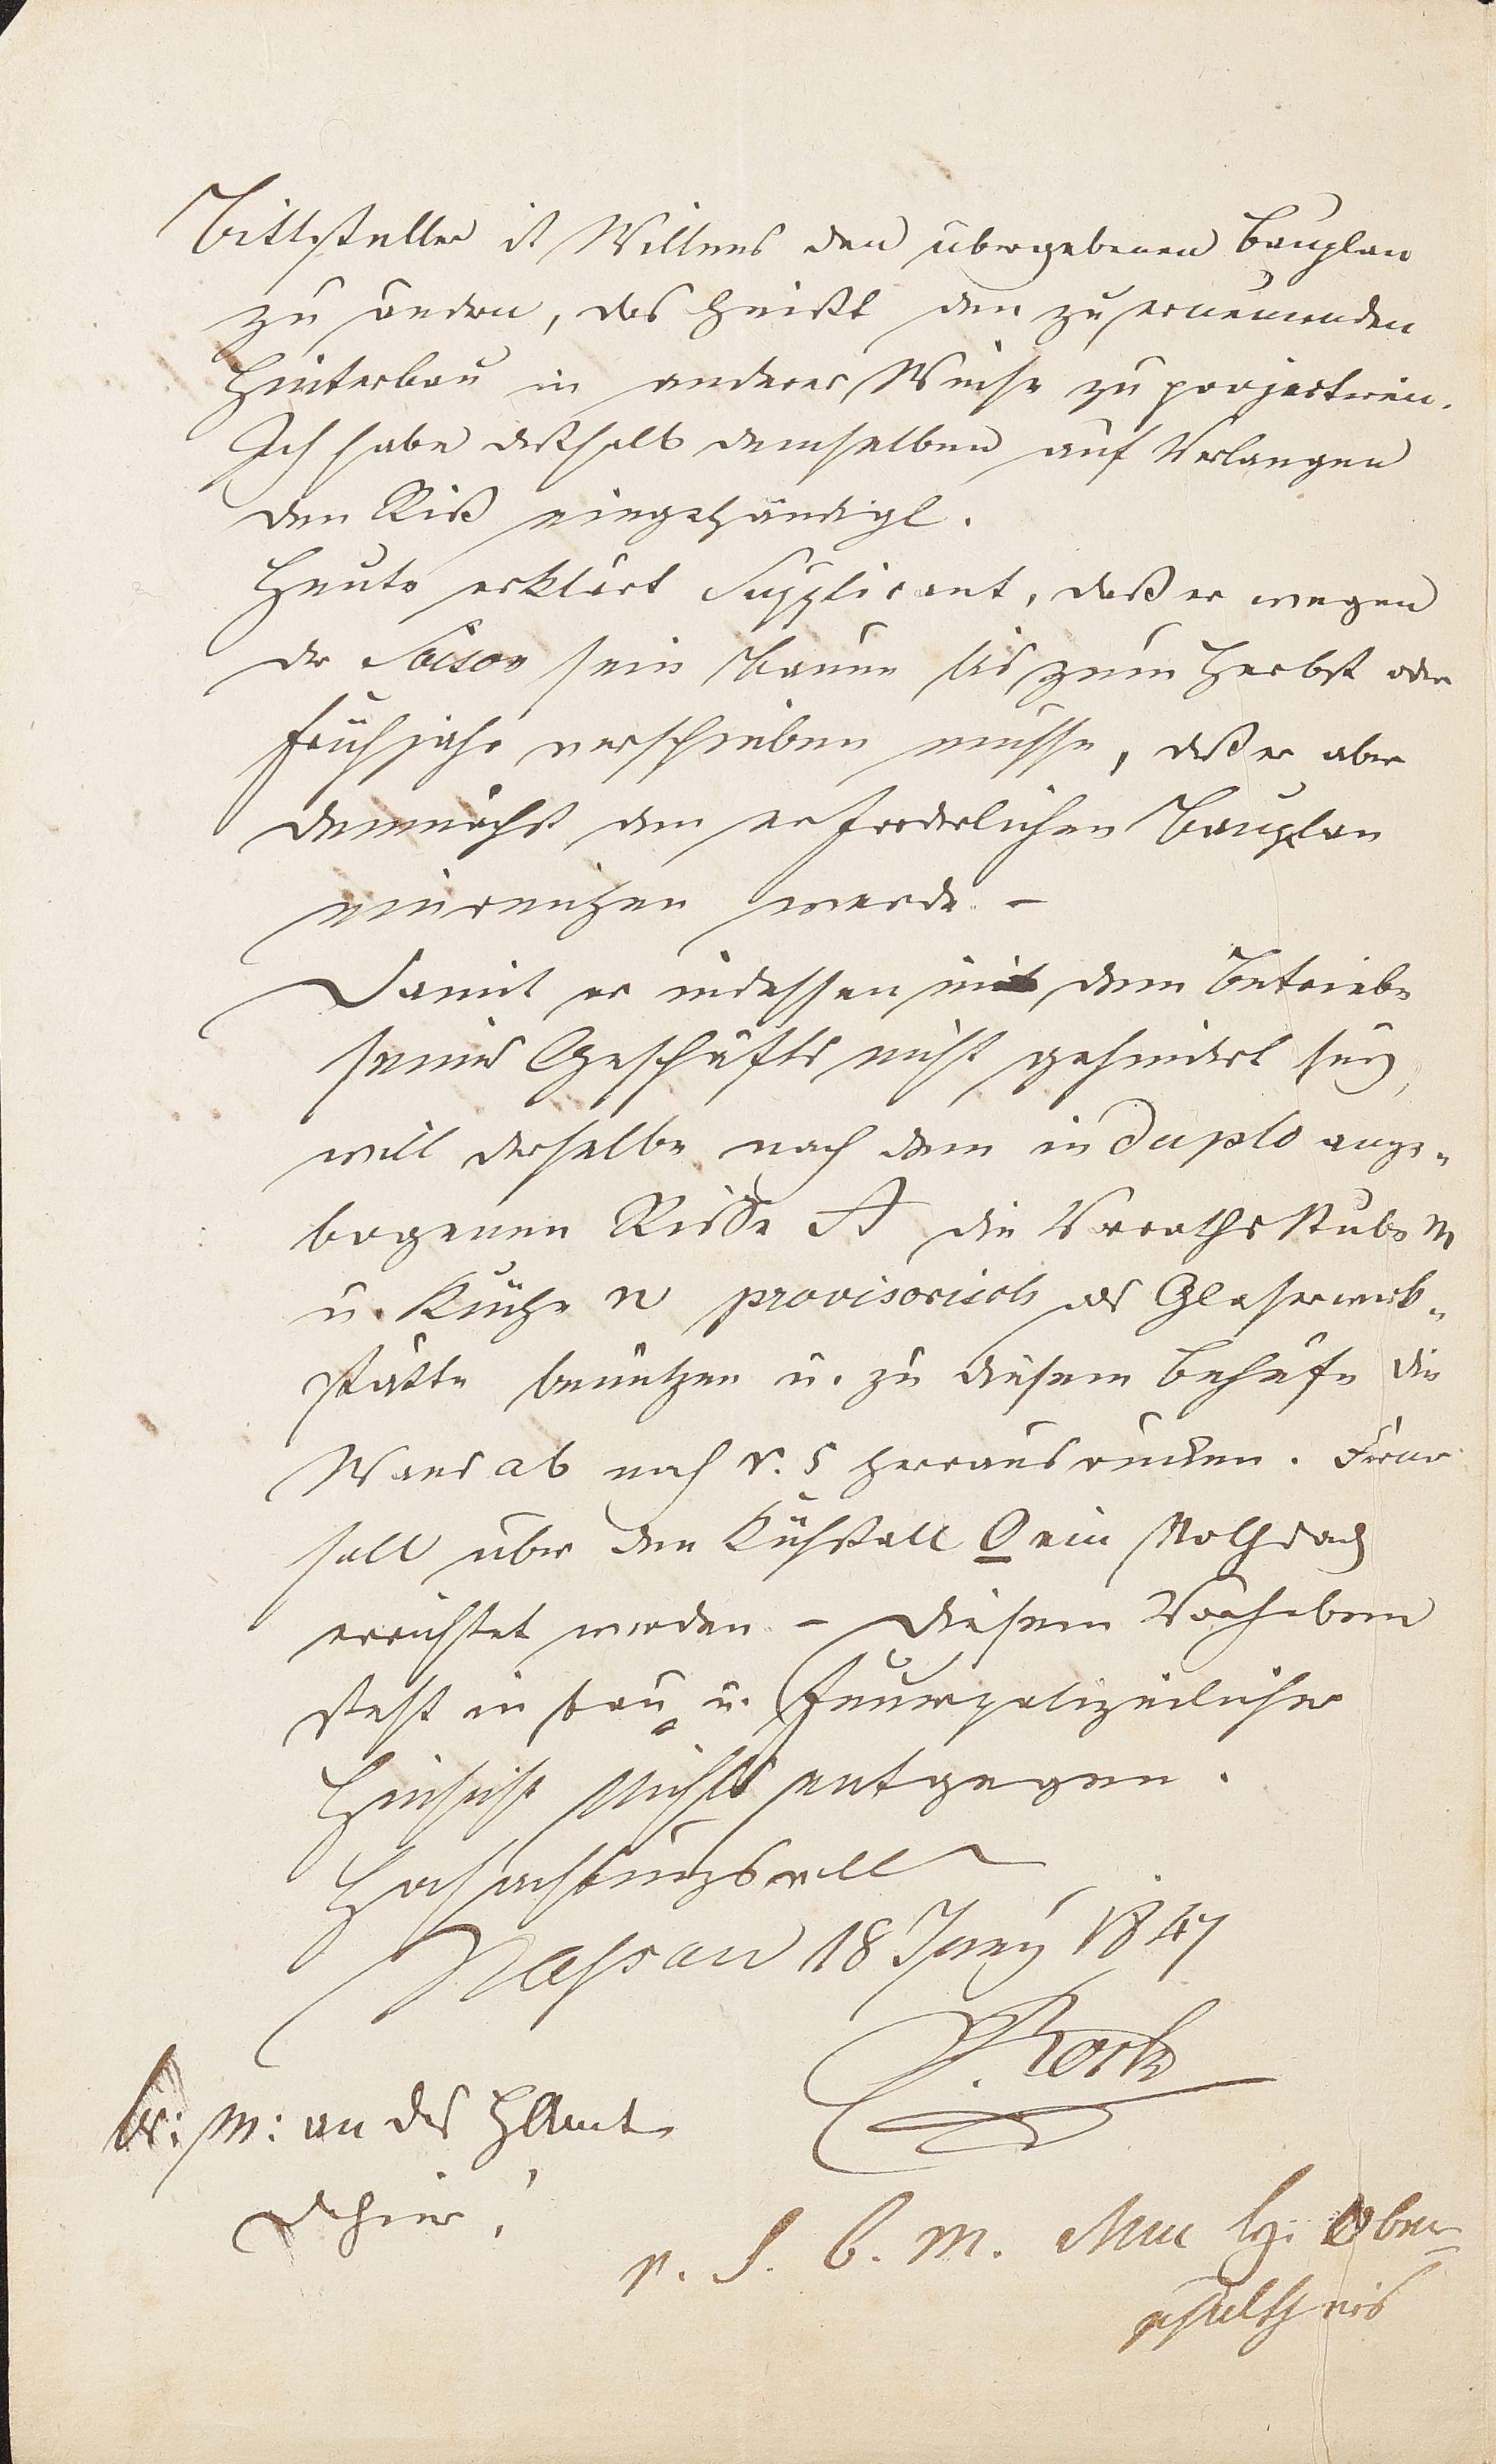 Bittsteller ist Willens den übergebenen Bauplan
zu ändern, das heißt den zu erneuernden
Hinterbau in anderer Weise zu projectiren.
Ich habe deßhalb demselben auf Verlangen
den Riß eingehändigt.
Heute erklärt Supplicant, daß er wegen
der Saison sein Bauen bis zum Herbst oder
Frühjahr verschieben müsse, daß er aber
demnächst den erforderlichen Bauplan
einreichen werde. –
Damit er indessen mit dem Betriebe
seines Geschäfts nicht gehindert sey,
will derselbe nach dem in duplo ange-
bogenen Risse A die Vorrathsstube m
u. Küche n provisorisch als Glaserwerk-
stätte benützen u. zu diesem Behufe die
Wand ab nach r. s herausrücken. Ferner
soll über den Kuhstall O ein Nothdach
errichtet werden. – Diesem Vorhaben
steht in bau- u. feuerpolizeilicher
Hinsicht Nichts entgegen.
Hochachtungsvoll
Nassau 18 Juny 1847
br: m: an das HAmt
dahier,
v. s. b. m. Hr. Ober-
schultheis